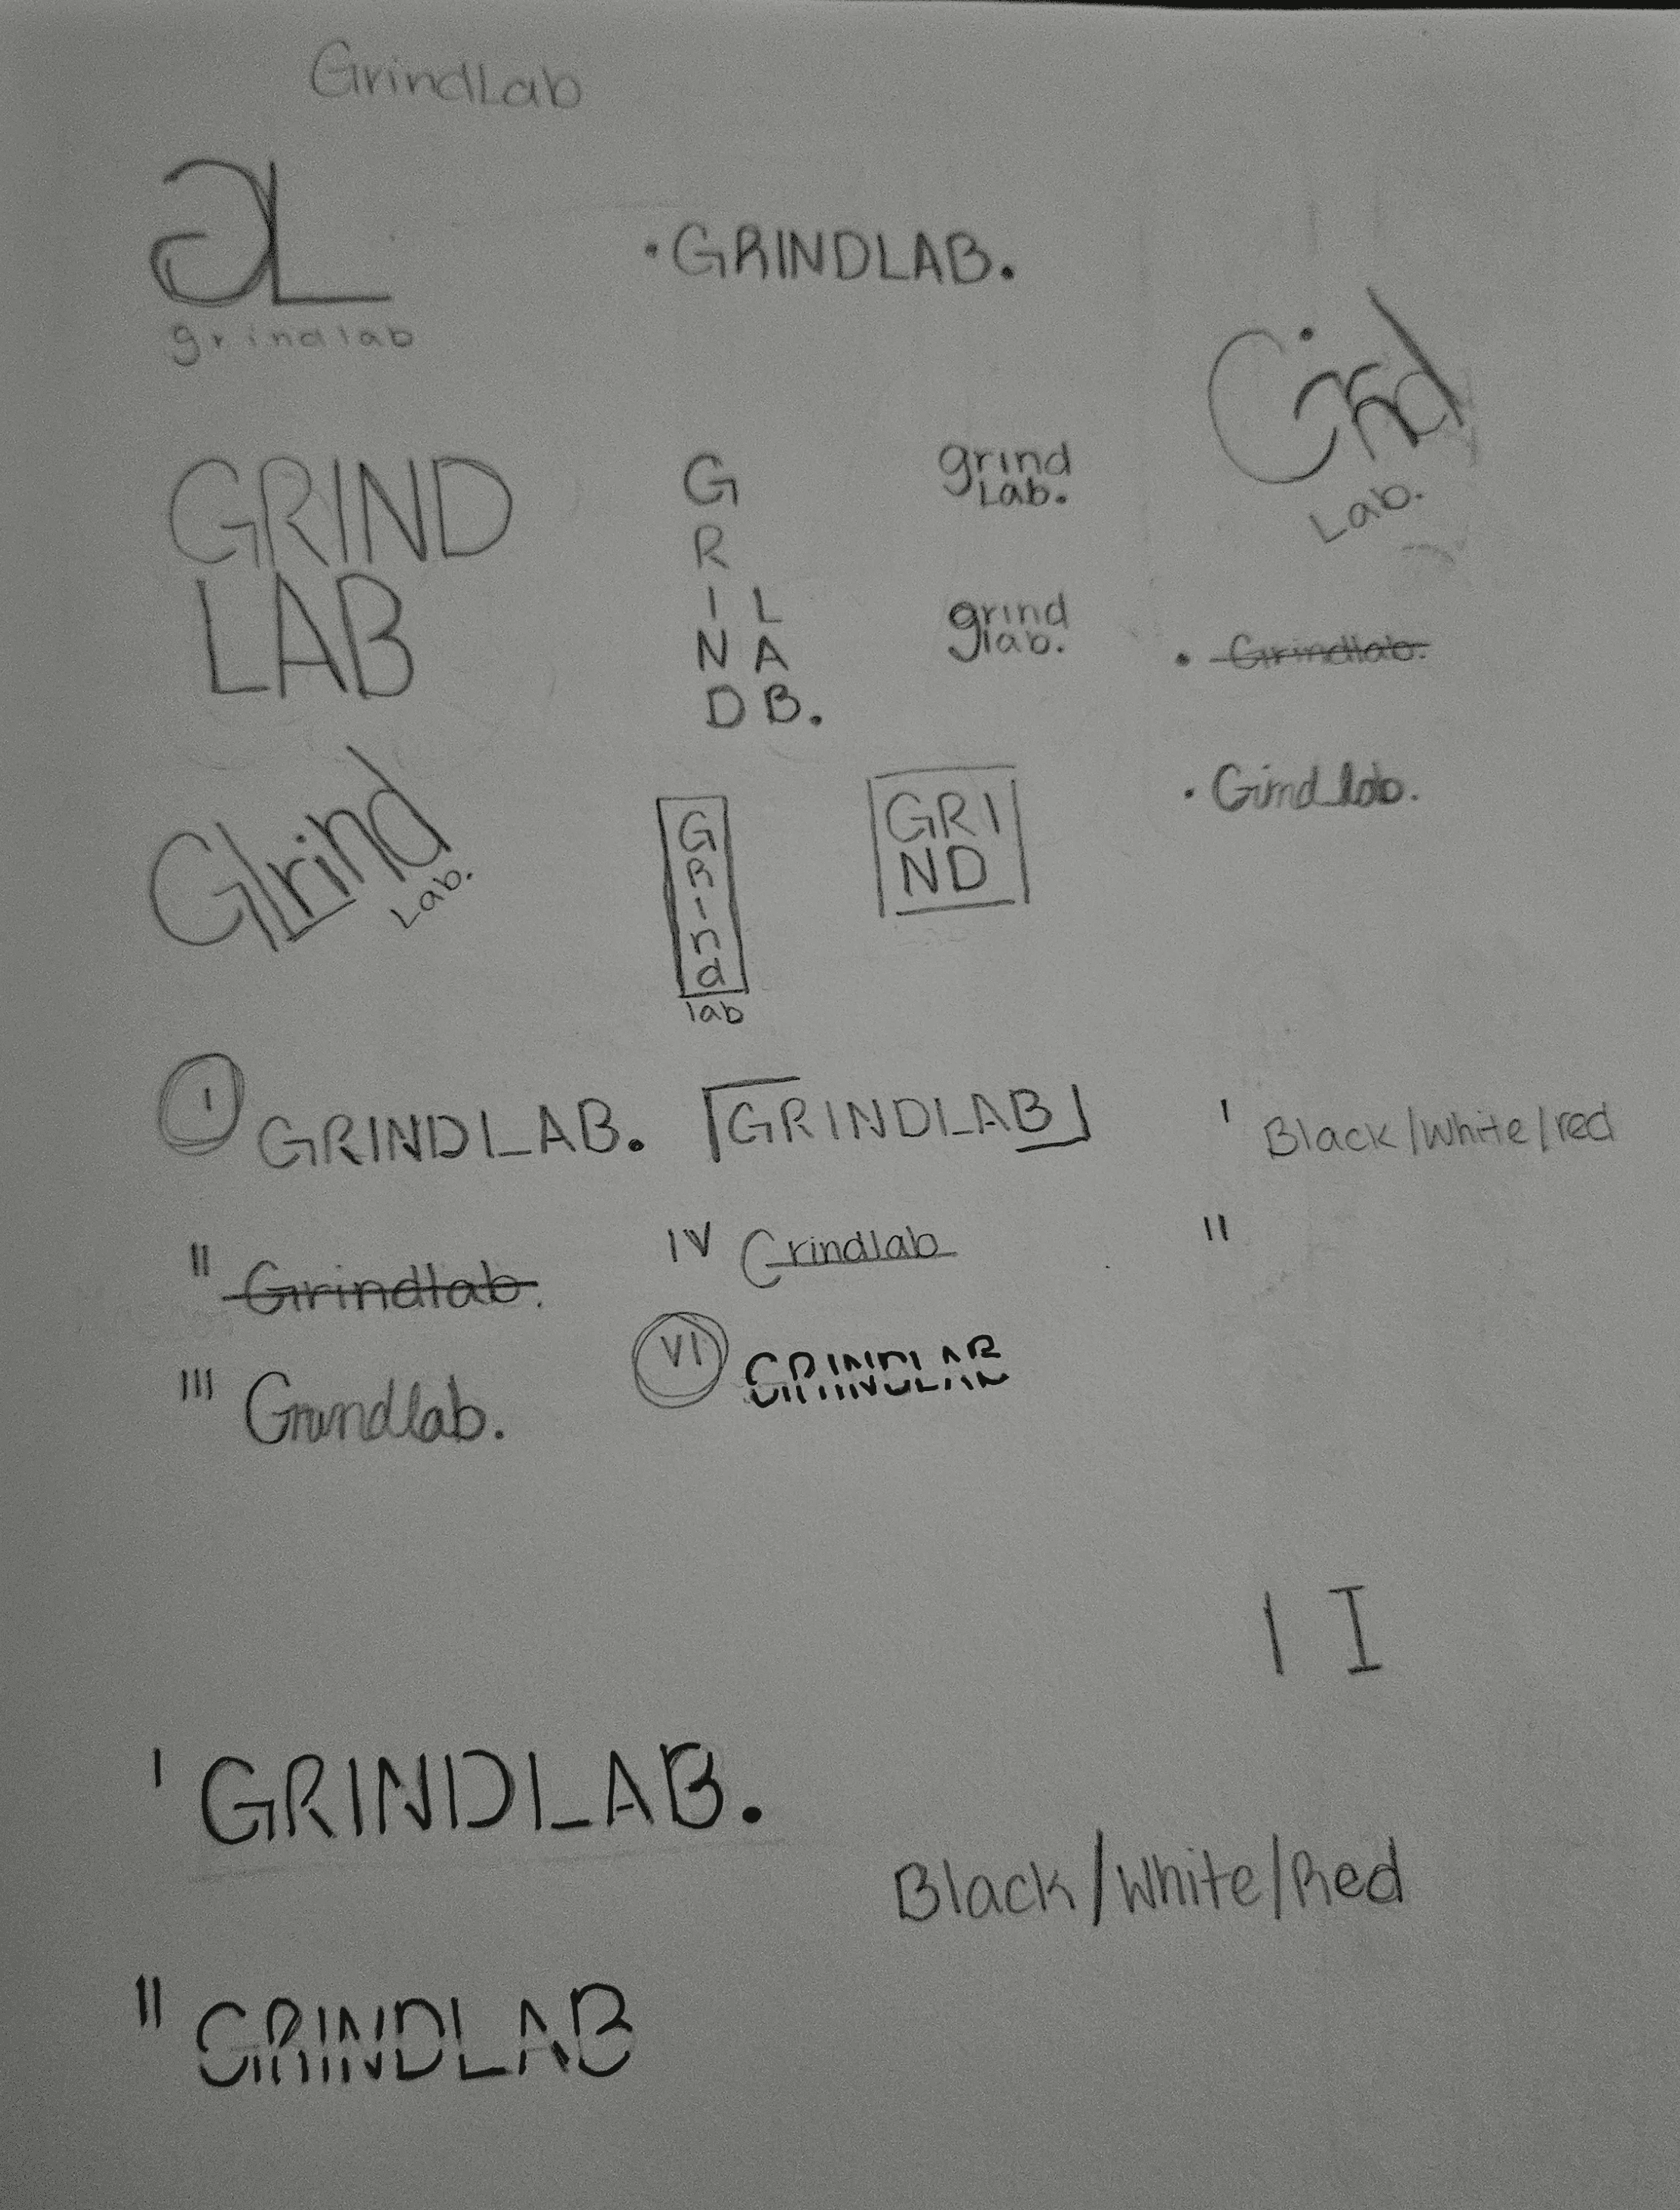 GrindLab
GL
grindlab
• GRINDLAB.
Grind
Lab.
GRIND
LAB
G
R
I L
N A
D B.
grind
Lab.
grind
lab.
• Grindlab.
• Grindlab.
Grind
Lab.
G
R
i
n
d
lab
GRI
ND
I GRINDLAB.
GRINDLAB
I Black/White/red
II Grindlab.
IV Grindlab
II
III Grindlab.
VI GRINDLAB
I I
I GRINDLAB.
Black/White/Red
II GRINDLAB